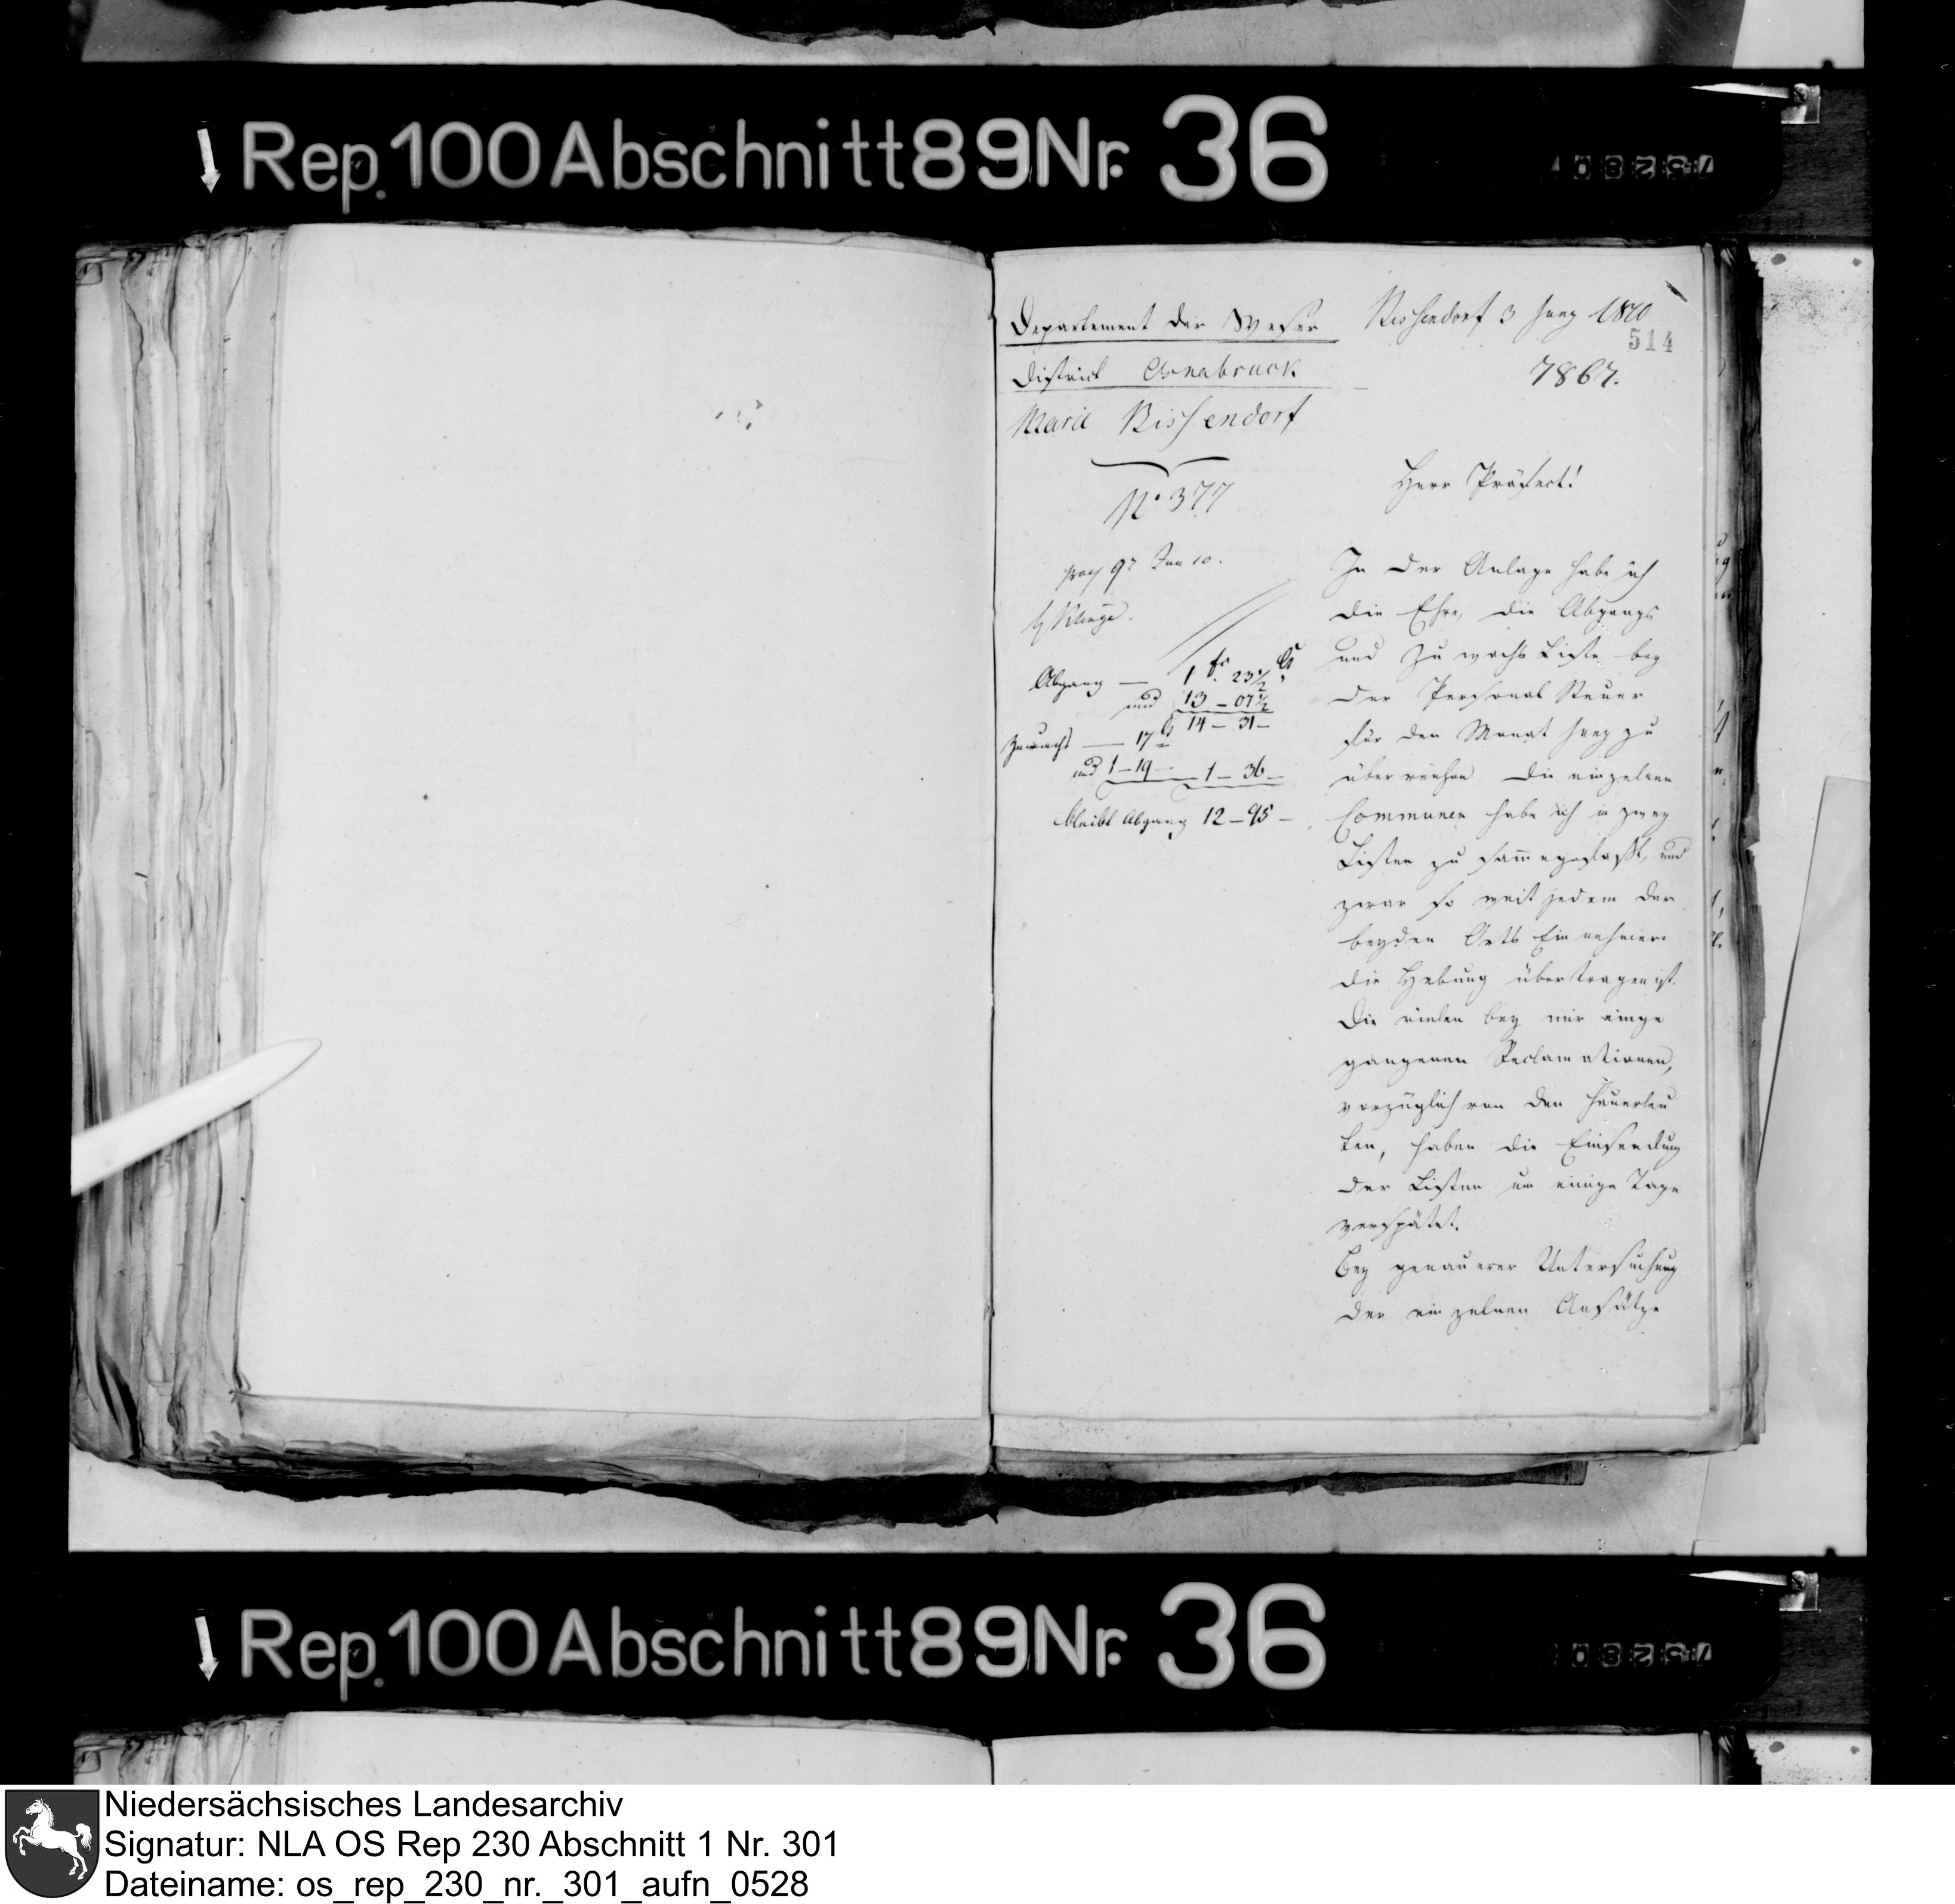 Rep. 100 Abschnitt 89 Nr. 36
Departement der Weser
District Osnabruck
Marie Bissendorf
N° 377
Bissendorf 3 Juny 1810
514
7867.
Herr Präfect!
Abgang — 1 fr. 23 1/2 Ct
und 13 - 07 1/2
14 - 31 -
Zuwachs — 17 Ct
und 1 - 19 - 1 - 36 -
bleibt Abgang 12 - 95 -
In der Anlage habe ich
die Ehre, die Abgangs
und Zuwachs Liste bey
der Personal Steuer
für den Monat Juny zu
überreichen. Die einzelnen
Communen habe ich in zwey
Listen zusammengefaßt, und
zwar so weit jedem der
beyden Orts Einnehmer
die Hebung übertragen ist.
Die vielen bey mir einge
gangenen Reclamationen,
vorzüglich von den Heuerleu
ten, haben die Einsendung
der Listen um einige Tage
verspätet.
Bey genauerer Untersuchung
der einzelnen Ansätze
Rep. 100 Abschnitt 89 Nr. 36
Niedersächsisches Landesarchiv
Signatur: NLA OS Rep 230 Abschnitt 1 Nr. 301
Dateiname: os_rep_230_nr._301_aufn_0528